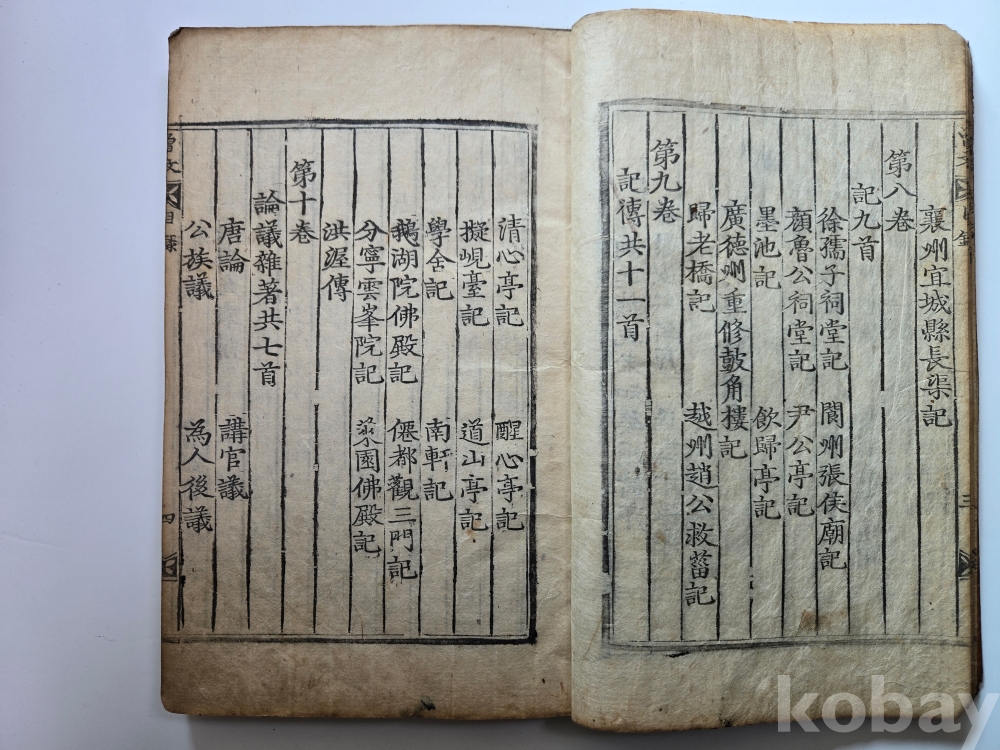 襄州宜城縣長渠記
第八卷
記九首
徐孺子祠堂記　閬州張侯廟記
顏魯公祠堂記　尹公亭記
墨池記　飲歸亭記
廣德州重修鼓角樓記
歸老橋記　越州趙公救菑記
第九卷
記傳共十一首
清心亭記　醒心亭記
擬峴臺記　道山亭記
學舍記　南軒記
鵝湖院佛殿記　僊都觀三門記
分寧雲峯院記　菜園佛殿記
洪渥傳
第十卷
論議雜著共七首
唐論　講官議
公族議　為人後議
曾文　目錄　三
曾文　目錄　四
kobay